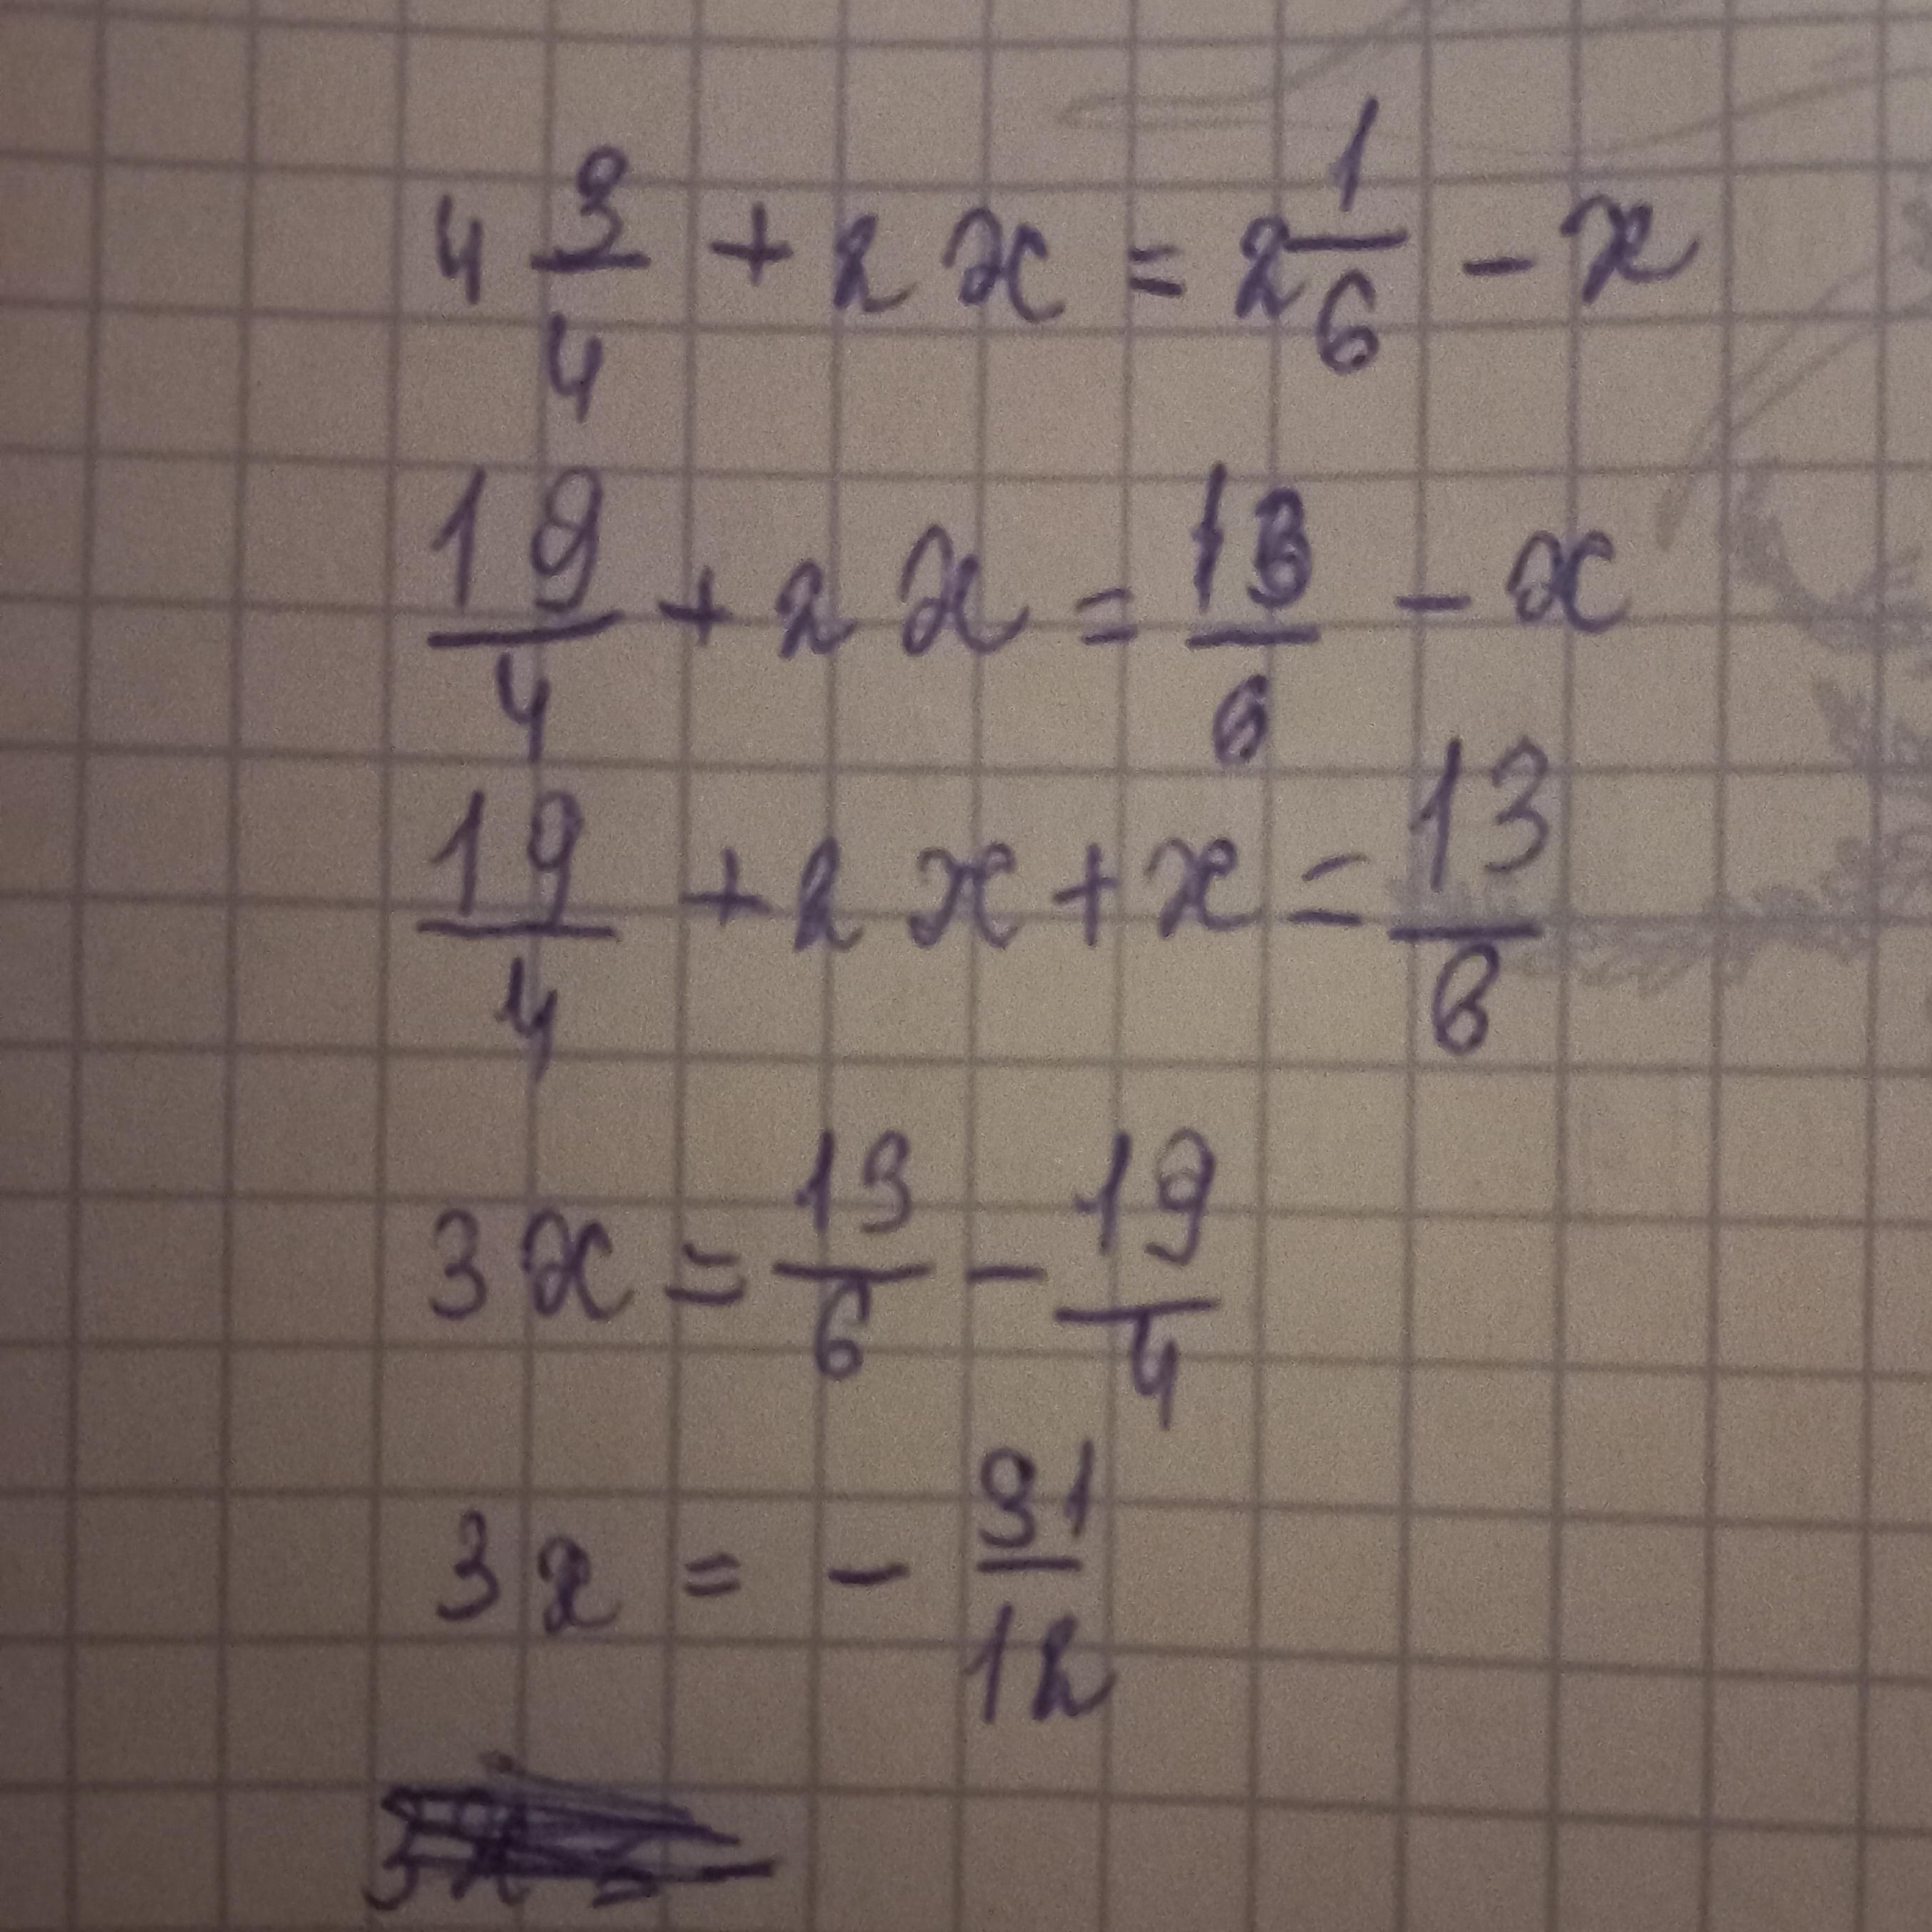 4 3/4 + 2x = 2 1/6 - x
19/4 + 2x = 13/6 - x
19/4 + 2x + x = 13/6
3x = 13/6 - 19/4
3x = - 31/12